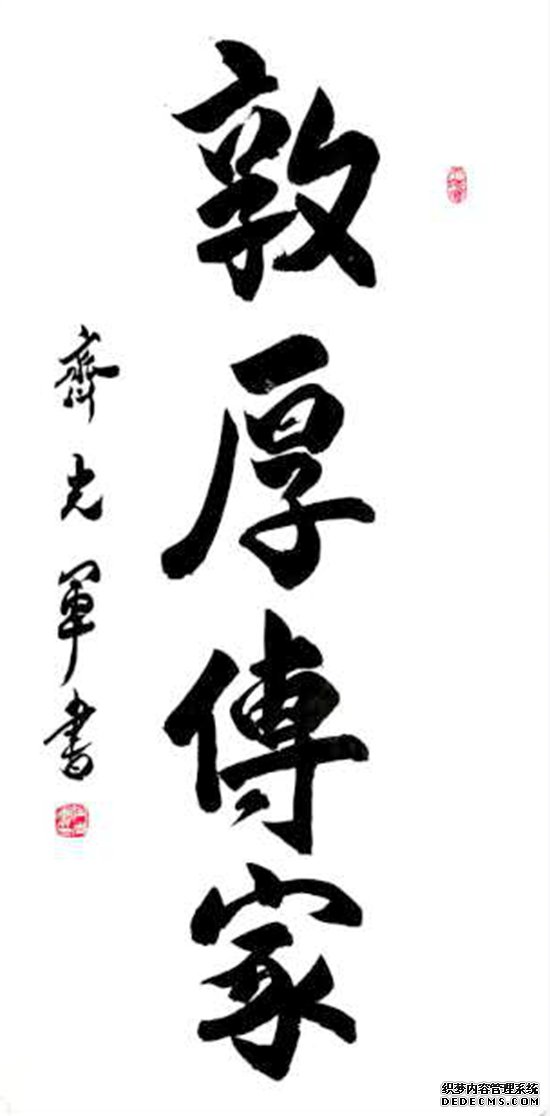 敦厚傳家
齊光軍書
织梦内容管理系统
DEDECMS.COM